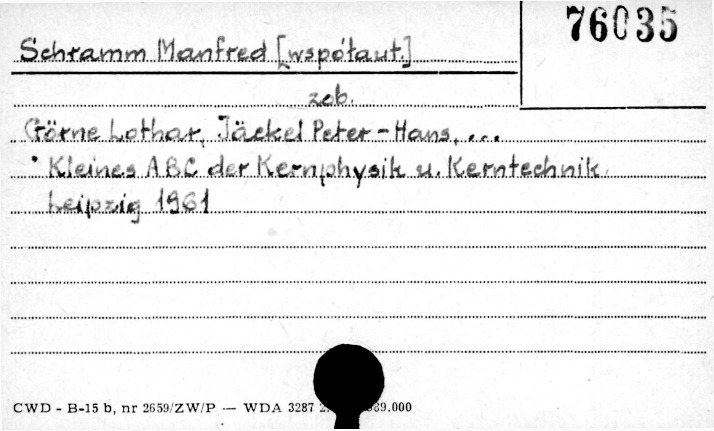 76035
Schramm Manfred [współaut.]
zob.
Görne Lothar, Jäckel Peter-Hans, ...
Kleines ABC der Kernphysik u. Kerntechnik.
Leipzig 1961
CWD - B-15 b, nr 2659/ZW/P — WDA 3287 69.000